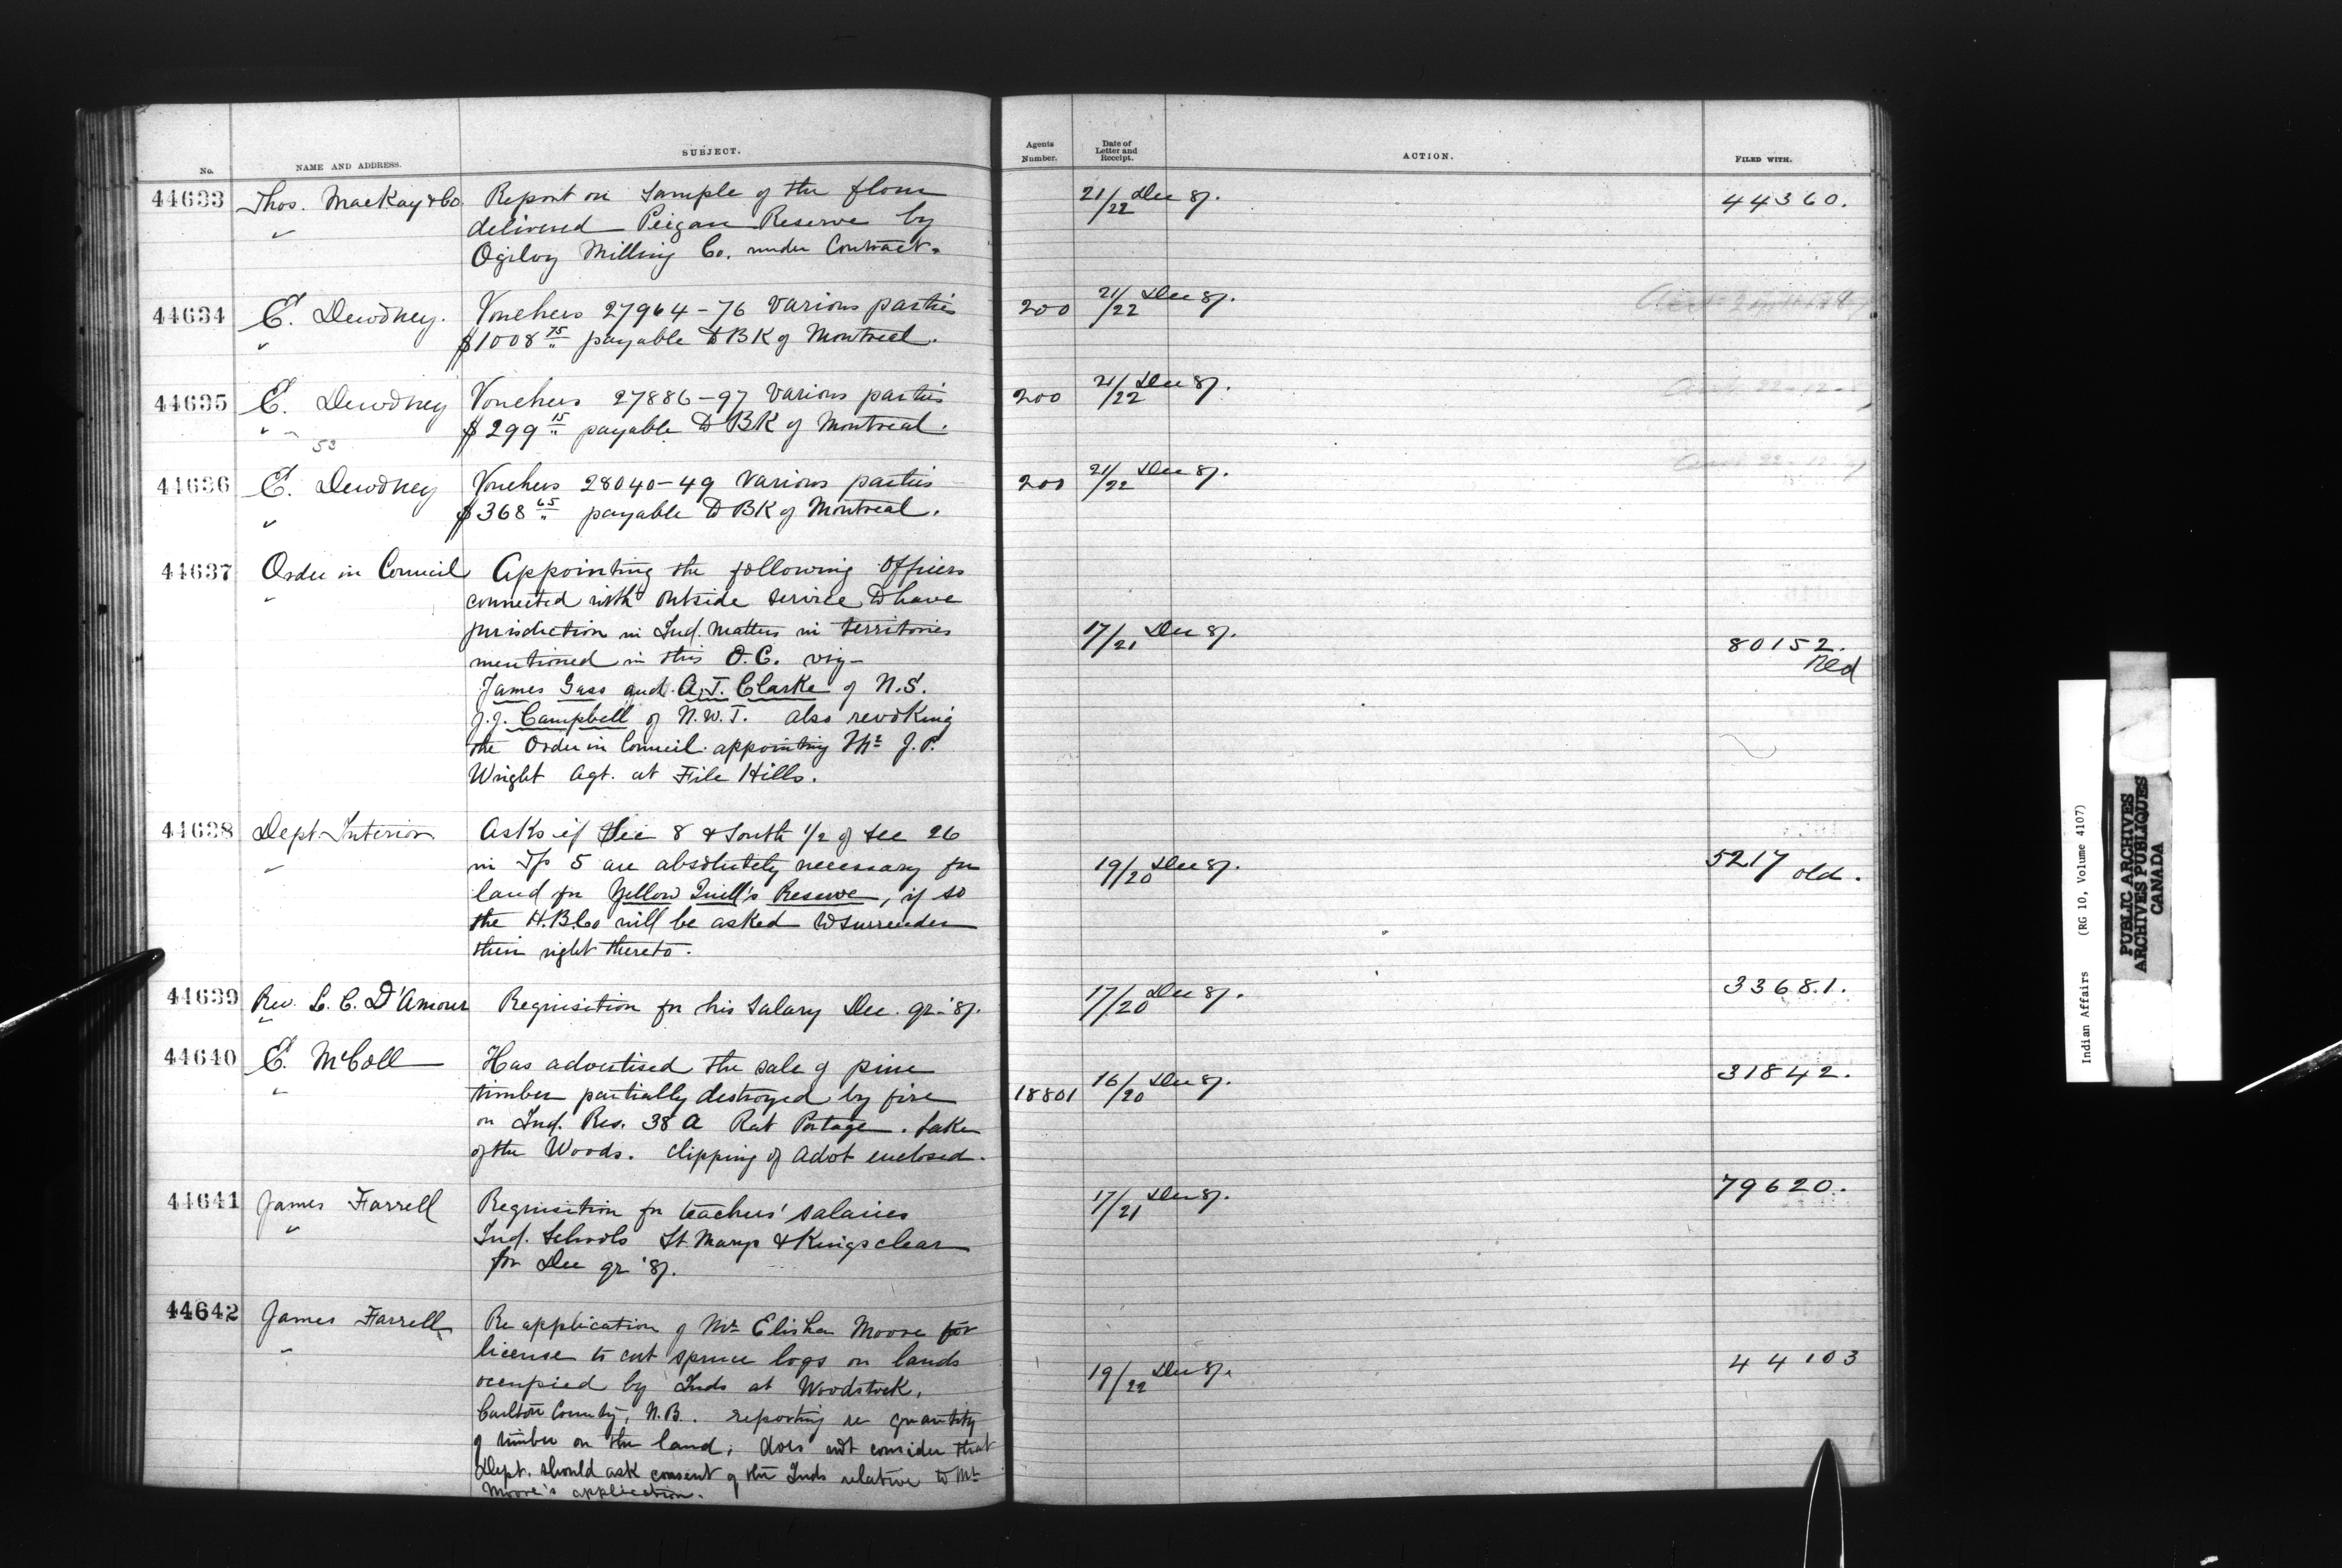 No. NAME AND ADDRESS. SUBJECT. Agents Number. Date of Letter and Receipt. ACTION. FILED WITH.
44633 Thos. MacKay & Co. Report on sample of the flour 21/22 Dec 87. 44360.
" delivered Peigan Reserve by
Ogilvy Milling Co. under Contract.
44634 E. Dewdney. Vouchers 27964-76 various parties 200 21/22 Dec 87.
" $1008 75 payable to BK of Montreal.
44635 E. Dewdney Vouchers 27886-97 various parties 200 21/22 Dec 87.
" $299 15 payable to BK of Montreal.
53
44636 E. Dewdney Vouchers 28040-49 various parties 200 21/22 Dec 87.
" $368 65 payable to BK of Montreal.
44637 Order in Council Appointing the following Officers
" connected with outside service to have
jurisdiction in Ind. Matters in territories 17/21 Dec 87. 80152.
mentioned in this O.C. viz- Red
James Gass and A.T. Clarke of N.S.
J.J. Campbell of N.W.T. also revoking
the Order in Council appointing Mr J.P.
Wright Agt. at File Hills.
44638 Dept. Interior Asks if Sec 8 & South 1/2 of Sec 26
" in Tp 5 are absolutely necessary for 19/20 Dec 87. 5217 old.
land for Yellow Quill's Reserve, if so
the H.B.Co will be asked to surrender
their right thereto.
44639 Rev. L. C. D'Amour Requisition for his salary Dec. qr. '87. 17/20 Dec 87. 33681.
"
44640 E. McColl Has advertised the sale of pine 31842.
" timber partially destroyed by fire 18801 16/20 Dec 87.
on Ind. Res. 38 A Rat Portage. Lake
of the Woods. Clipping of Advt enclosed.
44641 James Farrell Requisition for teachers' salaries 17/21 Dec 87. 79620.
" Ind. Schools St. Marys & Kingsclear
for Dec qr '87.
44642 James Farrell Re application of Mr Elisha Moore for
" license to cut spruce logs on lands
occupied by Inds at Woodstock, 19/22 Dec 87. 44103
Carlton County, N.B. reporting re quantity
of timber on the land, does not consider that
Dept. should ask consent of the Inds relative to Mr
Moore's application.
Indian Affairs (RG 10, Volume 4107)
PUBLIC ARCHIVES
ARCHIVES PUBLIQUES
CANADA